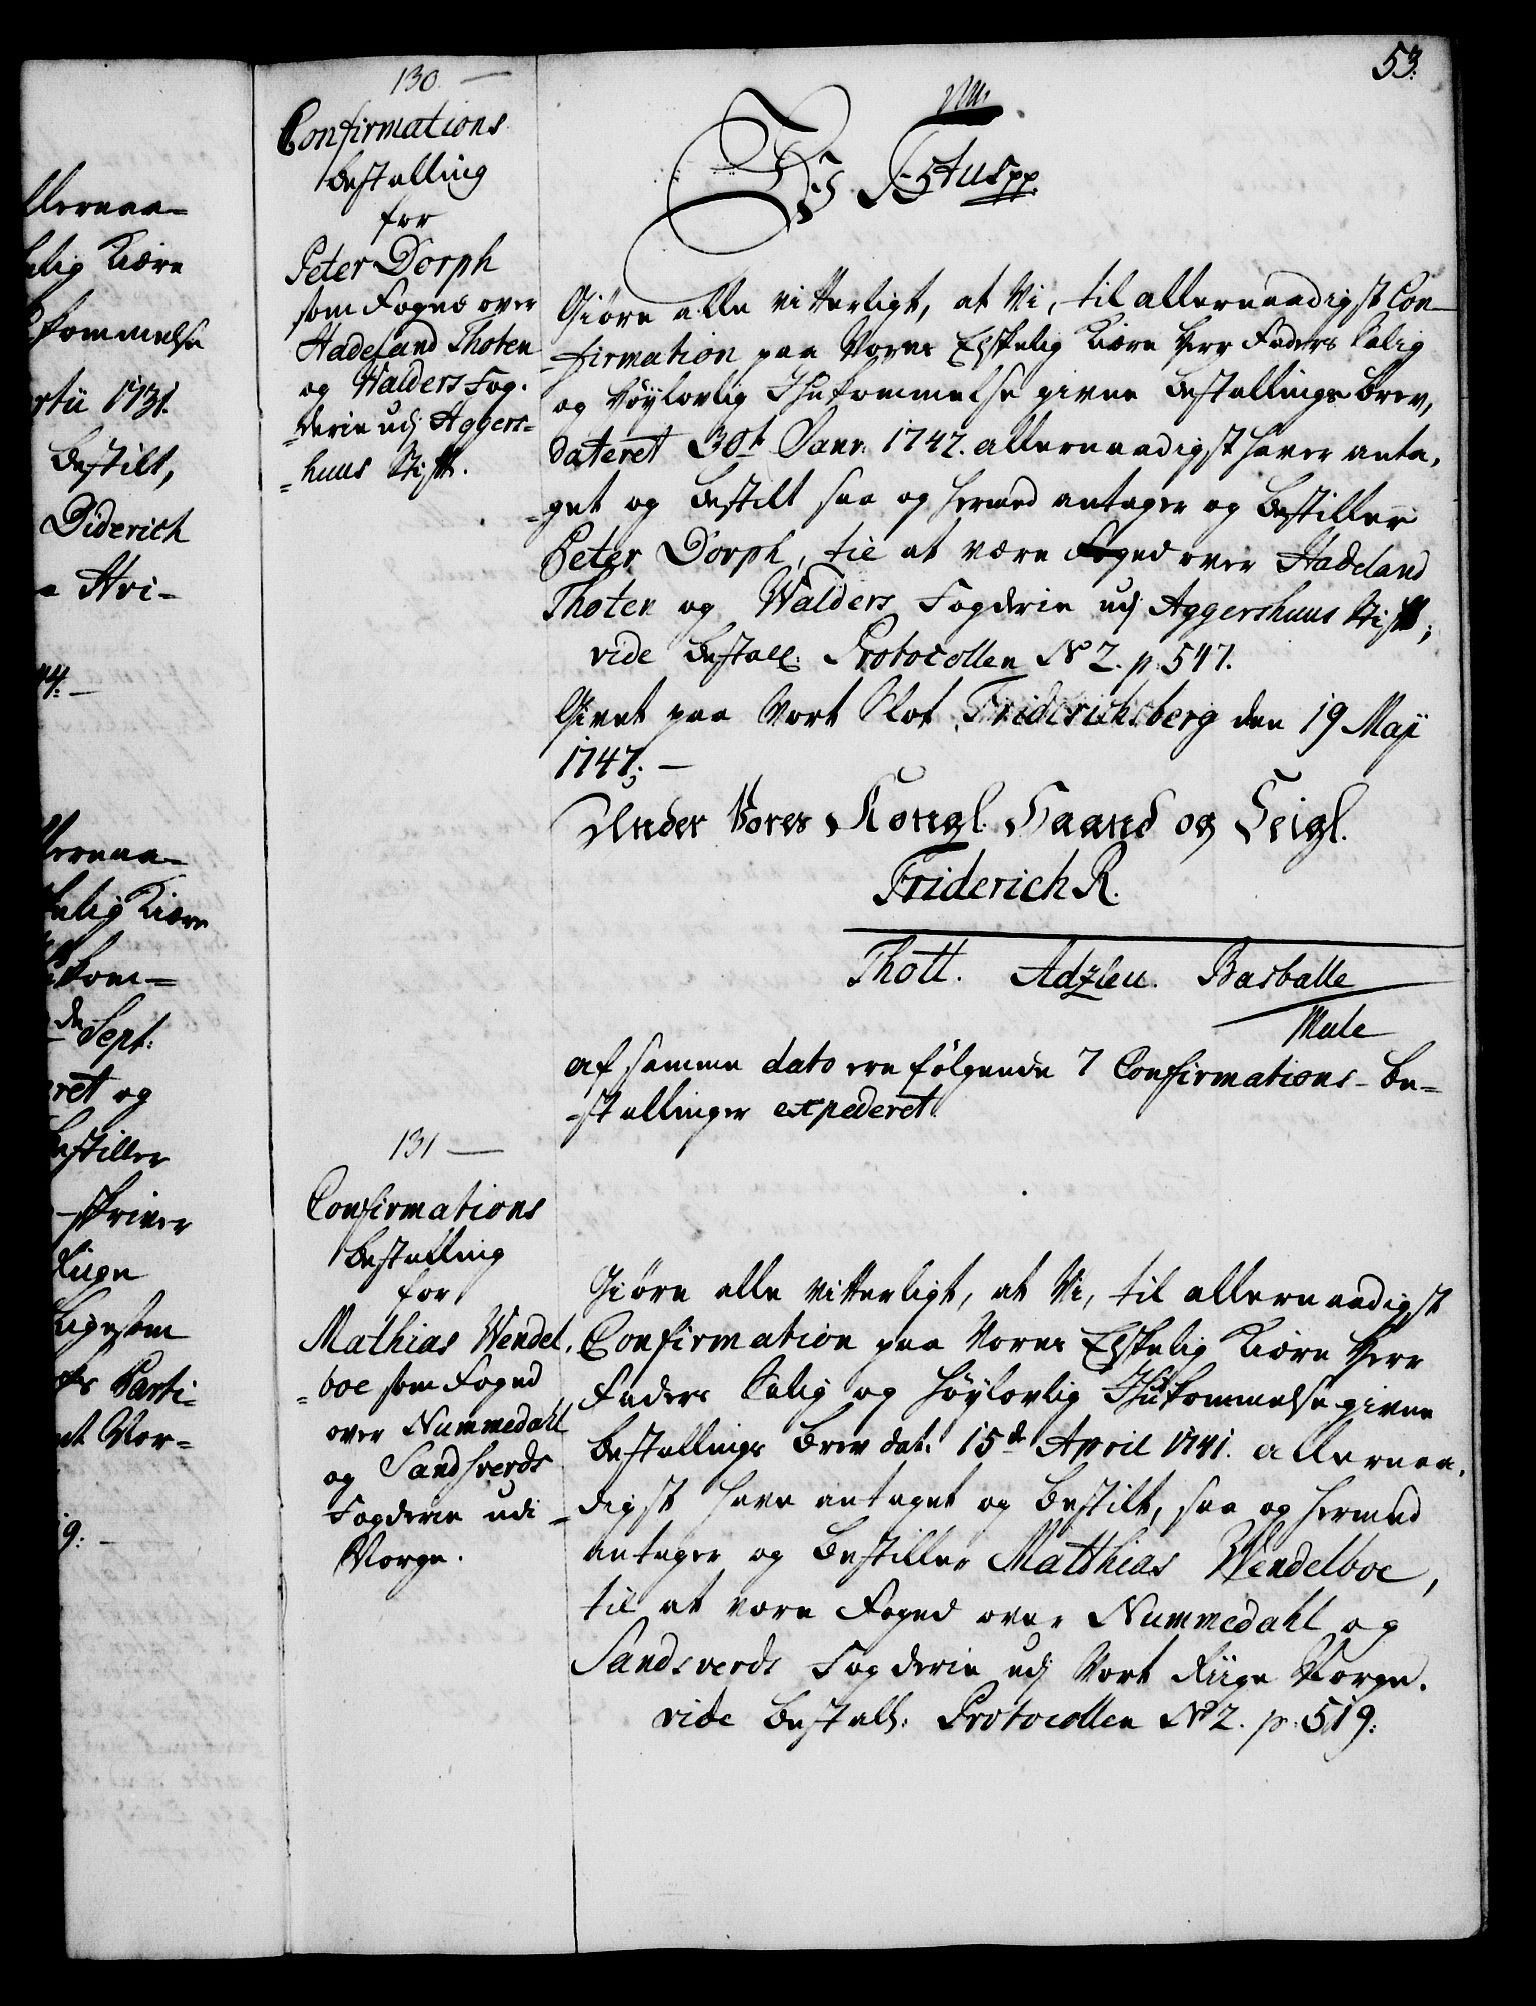 53.
130. —
Confirmations
Bestalling
for
Peter Dorph
som Foged over
Hadeland Thoten
og Walders Fog-
derie udj Aggers-
huus Stift.
Vii Fr: 5tus pp.
Giøre alle vitterligt, at Vi, til allernaadigst Con-
firmation paa Vores Elskelig Kiere Herr Faders Salig
og Høylovlig Ihukommelse givne Bestallings Brev,
dateret 30te Janr. 1742. allernaadigst haver anta-
get og Bestilt saa og hermed antager og Bestiller
Peter Dorph, til at være Foged over Hadeland
Thoten og Walders Fogderie udj Aggershuus Stift;
vide Bestall: Protocollen No 2. p. 547.
Givet paa Vort Slot Friderichsberg den 19 Maji
1747. —
Under Vores Kongl. Haand og Seigl.
Friderich R.
Thott. Adzleu. Basballe
Mule
af samme dato ere følgende 7 Confirmations-Be-
stallinger expederet.
131 —
Confirmations
Bestalling
for
Mathias Wendel-
boe som Foged
over Nummedahl
og Sandsverds
Fogderie udi
Norge.
Giøre alle vitterligt, at Vi, til allernaadigst
Confirmation paa Vores Elskelig Kiere Herr
Faders Salig og Høylovlig Ihukommelse givne
Bestallings Brev dat: 15de April 1741. allernaa-
digst have antaget og Bestilt, saa og hermed
antager og Bestiller Matthias Wendelboe,
til at være Foged over Nummedahl og
Sandsverds Fogderie udj Vort Riige Norge.
vide Bestall: Protocollen No 2. p. 519.
llernaa-
elig Kiere
kommelse
rtii 1731.
Bestilt,
Diderich
Hvi-
44. —
llernaa-
kelig Kiere
kom-
de Sept:
ret og
Bestiller
skriver
Riige
Ligesom
Parti-
et Nor-
19. —